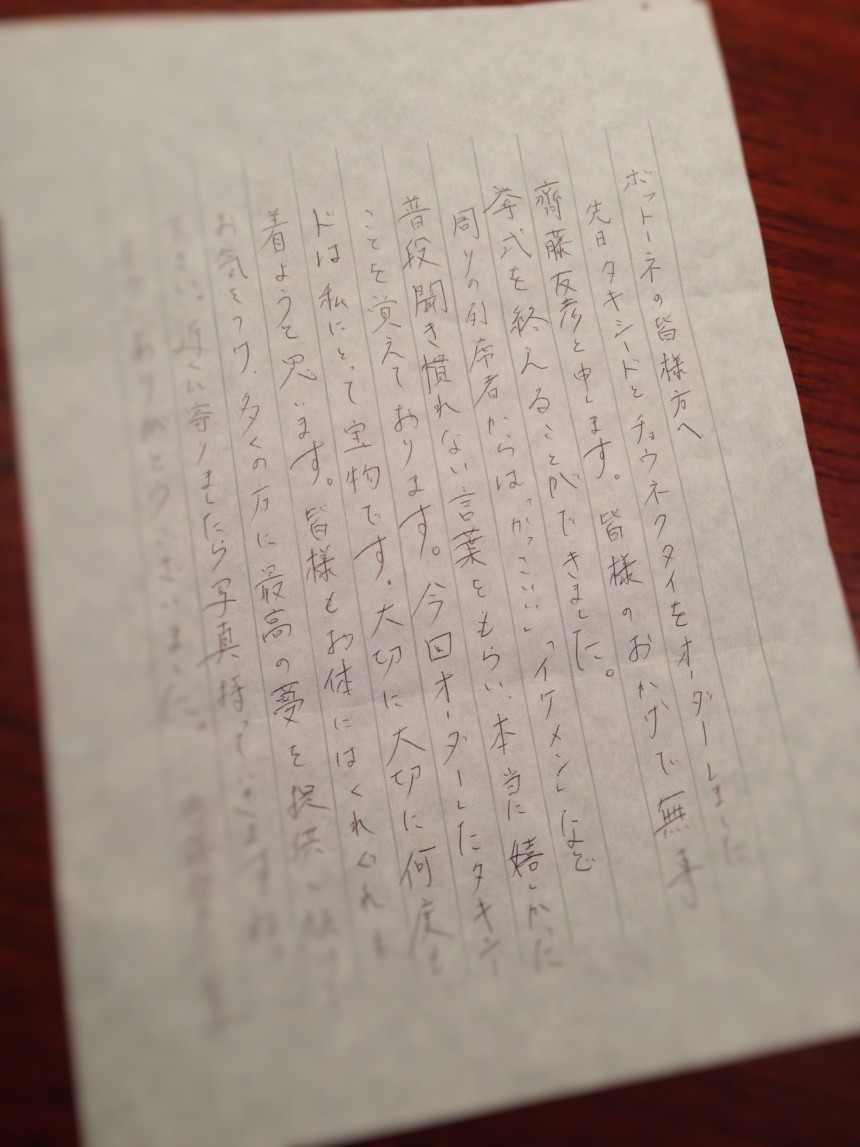 ボットーネの皆様方へ
先日タキシードとチョウネクタイをオーダーしました
齊藤友彦と申します。皆様のおかげで無事
挙式を終えることができました。
周りの列席者からは「かっこいい」「イケメン」など
普段聞き慣れない言葉をもらい、本当に嬉しかった
ことを覚えております。今回オーダーしたタキシー
ドは私にとって宝物です。大切に大切に何度も
着ようと思います。皆様もお体にはくれぐれも
お気をつけ、多くの方に最高の夢を提供し続けて
下さい。近くに寄りましたら写真持っていきますね。
ありがとうございました。